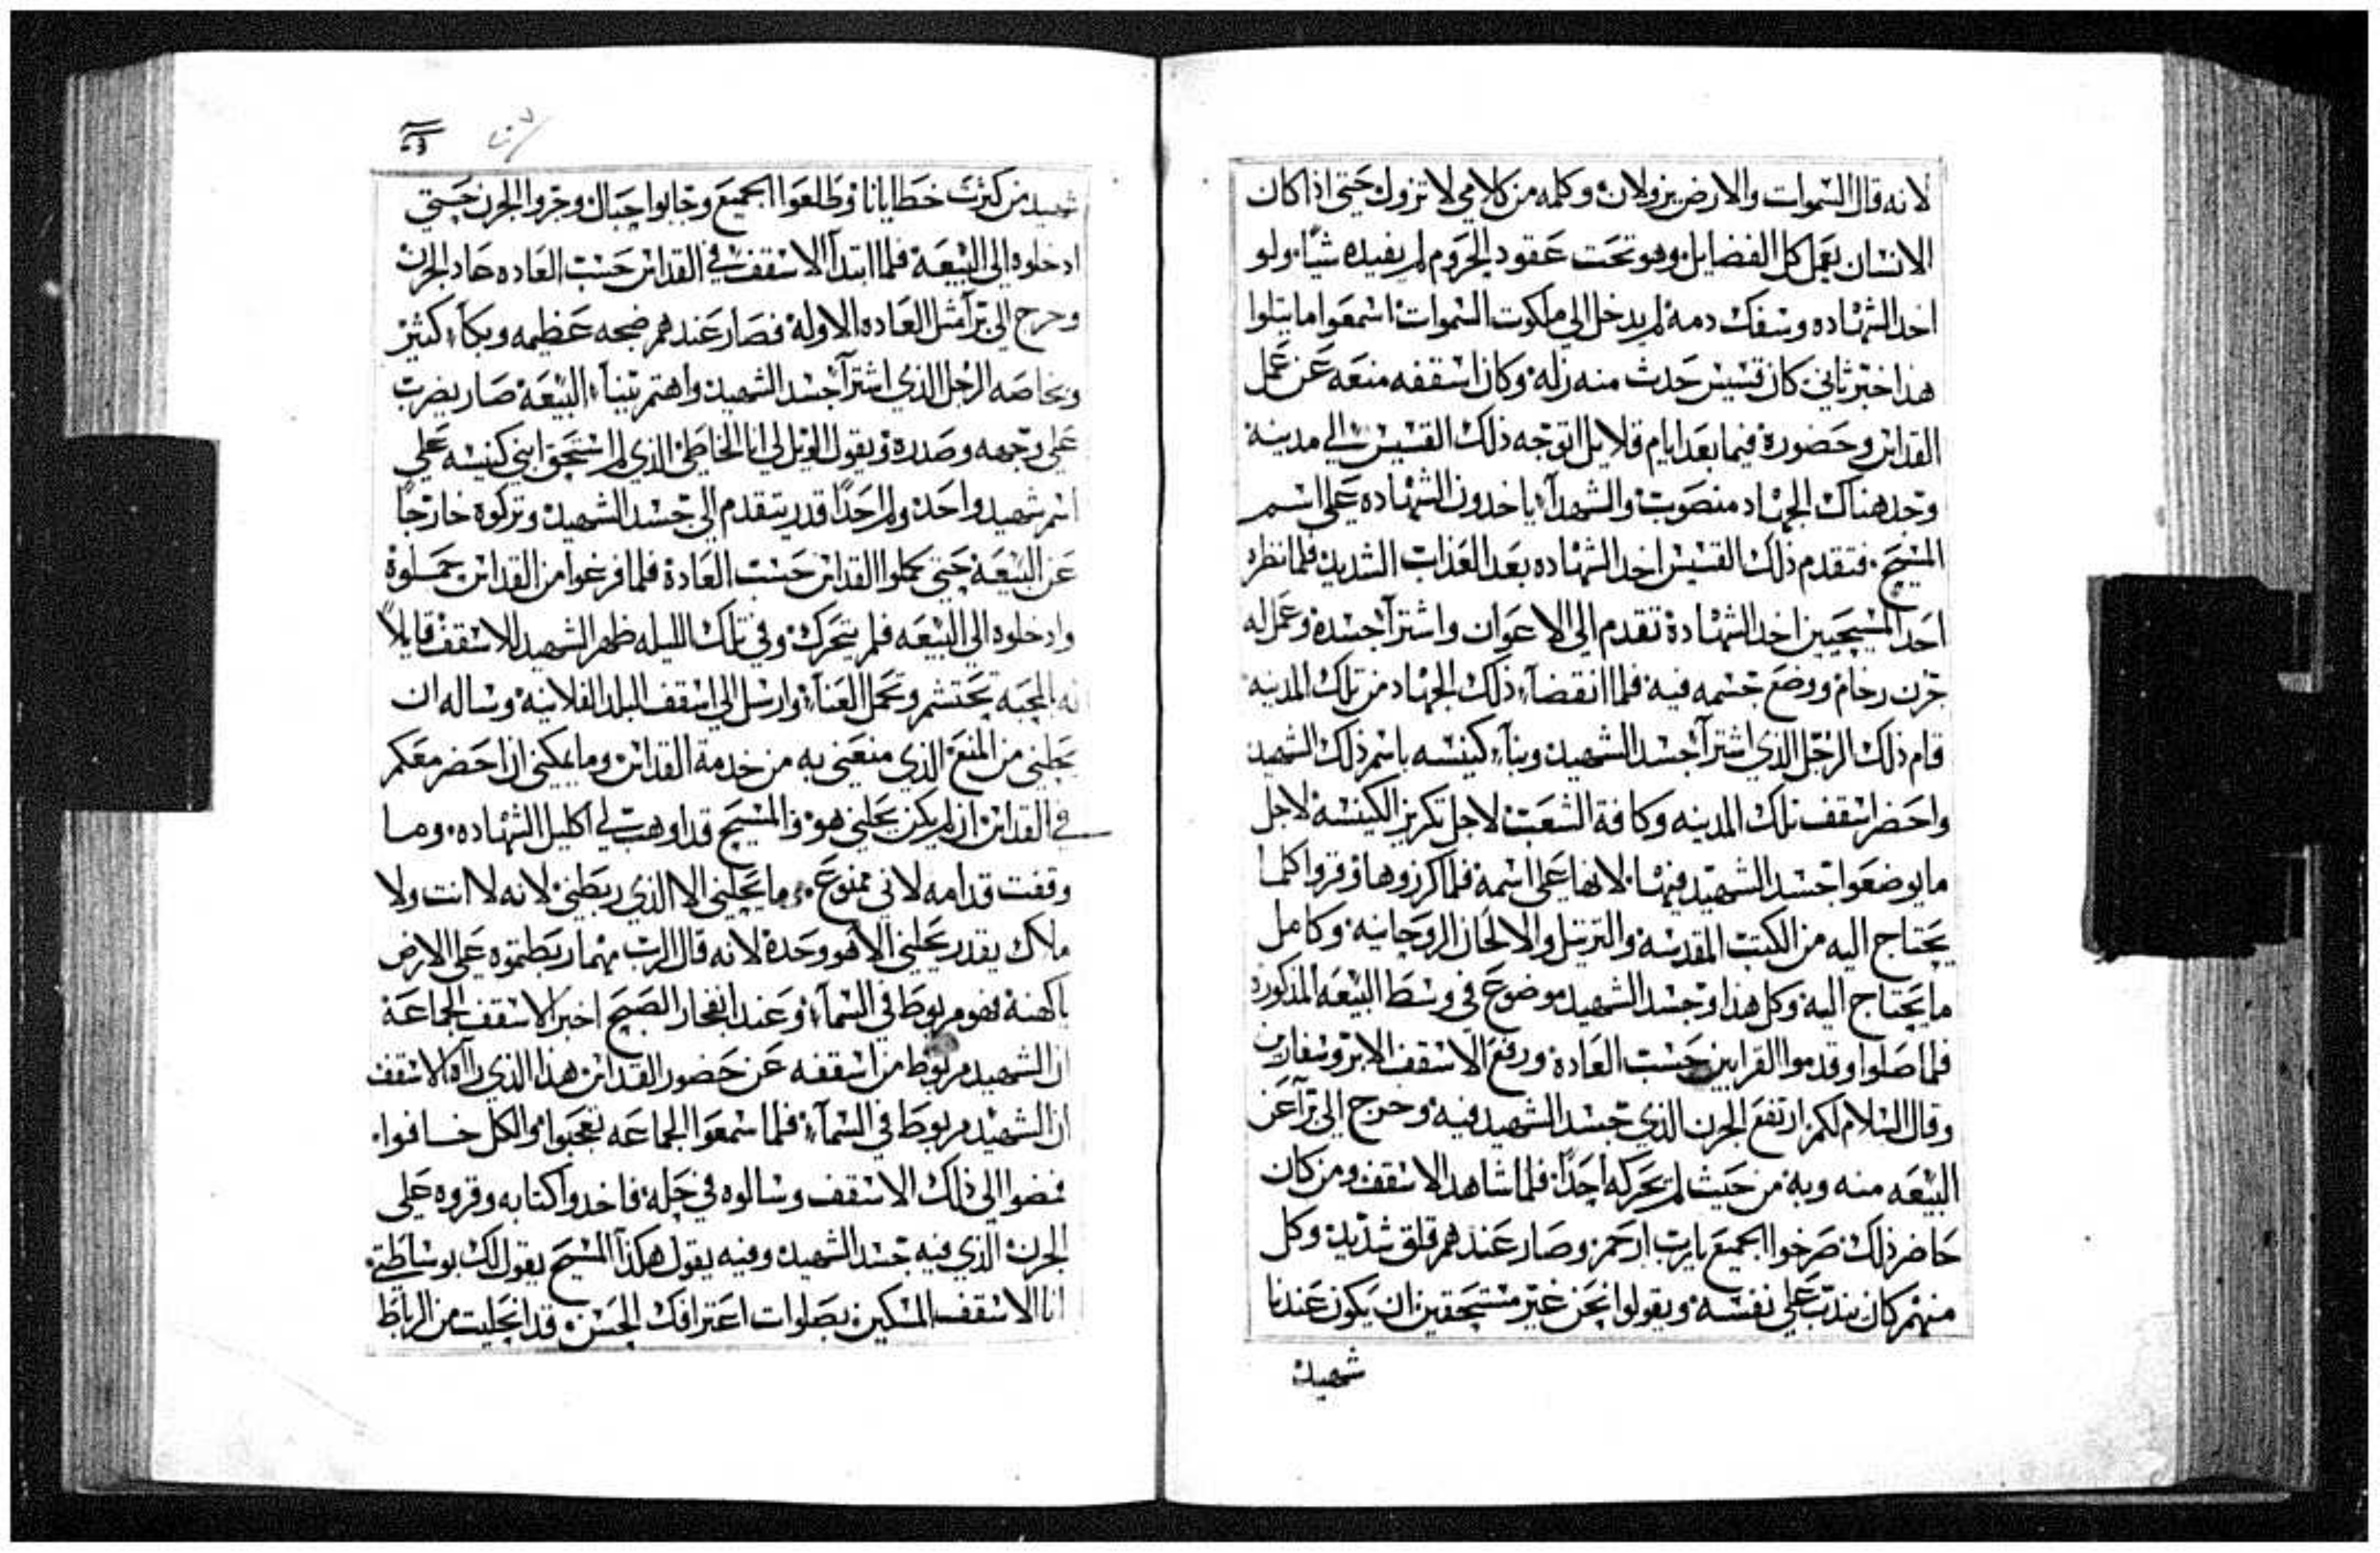 لانه قال السموات والارض يزولان وكلمه من كلامي لا تزول حتى اذا كان
الانسان يعمل كل الفضايل وهو تحت عقود الحروم لم يفيده شيًا ولو
اخد الشهاده وسفك دمه لم يدخل الي ملكوت السموات اسمعوا ما يتلوا
هذا خبر ثاني كان قسيس حدث منه زله وكان اسقفه منعه عن عمل
القداس وحضوره فيما بعد ايام قلايل اتوجه ذلك القسيس الي مدينة
وجد هناك الجهاد منصوب والشهدآ ياخدون الشهاده على اسم
المسيح فتقدم ذلك القسيس اخد الشهاده بعد العذاب الشديد فلما نظره
احد المسيحيين اخد الشهادة تقدم الى الاعوان واشترآ جسده وعمل له
جرن رخام ووضع جسمه فيه فلما انقضآ ذلك الجهاد من تلك المدينه
قام ذلك الرجل الذي اشترآ جسد الشهيد وبنآ كنيسه باسم ذلك الشهيد
واحضر اسقف تلك المدينه وكافة الشعب لاجل تكريز الكنيسه لاجل
ما يوضعوا جسد الشهيد فيها لانها على اسمه فلما كرزوها وقروا كلما
يحتاج اليه من الكتب المقدسه والترتيل والالحان الروحانيه وكامل
ما يحتاج اليه وكل هذا وجسد الشهيد موضوع في وسط البيعه المذكوره
فلما صلوا وقدموا القرابين حسب العاده ورفع الاسقف الابروسفارين
وقال السلام لكم ارتفع الجرن الذي جسد الشهيد فيه وخرج الى برآ عن
البيعه منه وبه من حيث لم يحركه احدًا فلما شاهد الاسقف ومن كان
حاضر ذلك صرخوا الجميع يارب ارحم وصار عندهم قلق شديد وكل
منهم كان يندب على نفسه ويقولوا نحن غير مستحقين ان يكون عندنا
شهيد
شهيد من كثرت خطايانا وطلعوا الجميع وجابوا حبال وجروا الجرن حتي
ادخلوه الي البيعة فلما ابتدآ الاسقف في القداس حسب العاده عاد الجرن
وخرج الي برآ مثل العاده الاوله فصار عندهم ضجه عظيمه وبكآ كثير
وبخاصه الرجل الذي اشترآ جسد الشهيد واهتم ببنآ البيعة صار يضرب
على وجهه وصدره ويقول الويل لي انا الخاطي الذي لم استحق ابني كنيسه علي
اسم شهيد واحد ولم احدًا قدر يتقدم الي جسد الشهيد وتركوه خارجًا
عن البيعة حتي كملوا القداس حسب العادة فلما فرغوا من القداس حملوه
وادخلوه الي البيعه فلم يتحرك وفي تلك الليله ظهر الشهيد للاسقف قايلاً
له المحبه تحتشم وتحمل العنآ وارسل الى اسقف البلد الفلانيه وساله ان
يحلني من المنع الذي منعني به من خدمة القداس وما يمكني ان احضر معكم
في القداس ان لم يكن يحلني هو والمسيح قد اوهب لي اكليل الشهاده وما
وقفت قدامه لاني ممنوع وما يحلني الا الذي ربطني لانه لا انت ولا
ملاك يقدر يحلني الا هو وحدة لانه قال الرب مهما ربطتموه على الارض
ياكهنة فهو مربوطًا في السمآ وعند انفجار الصبح اخبر الاسقف الجماعة
ان الشهيد مربوط من اسقفه عن حضور القداس هذا الذي رآه الاسقف
ان الشهيد مربوطًا في السمآ فلما سمعوا الجماعه تعجبوا والكل خافوا
فمضوا الى ذلك الاسقف وسالوه في حله فاخدوا كتابه وقروه على
الجرن الذي فيه جسد الشهيد وفيه يقول هكذا المسيح يقول لك بوساطتي
انا الاسقف المسكين بصلوات اعترافك الحسن قد انحليت من الرباط